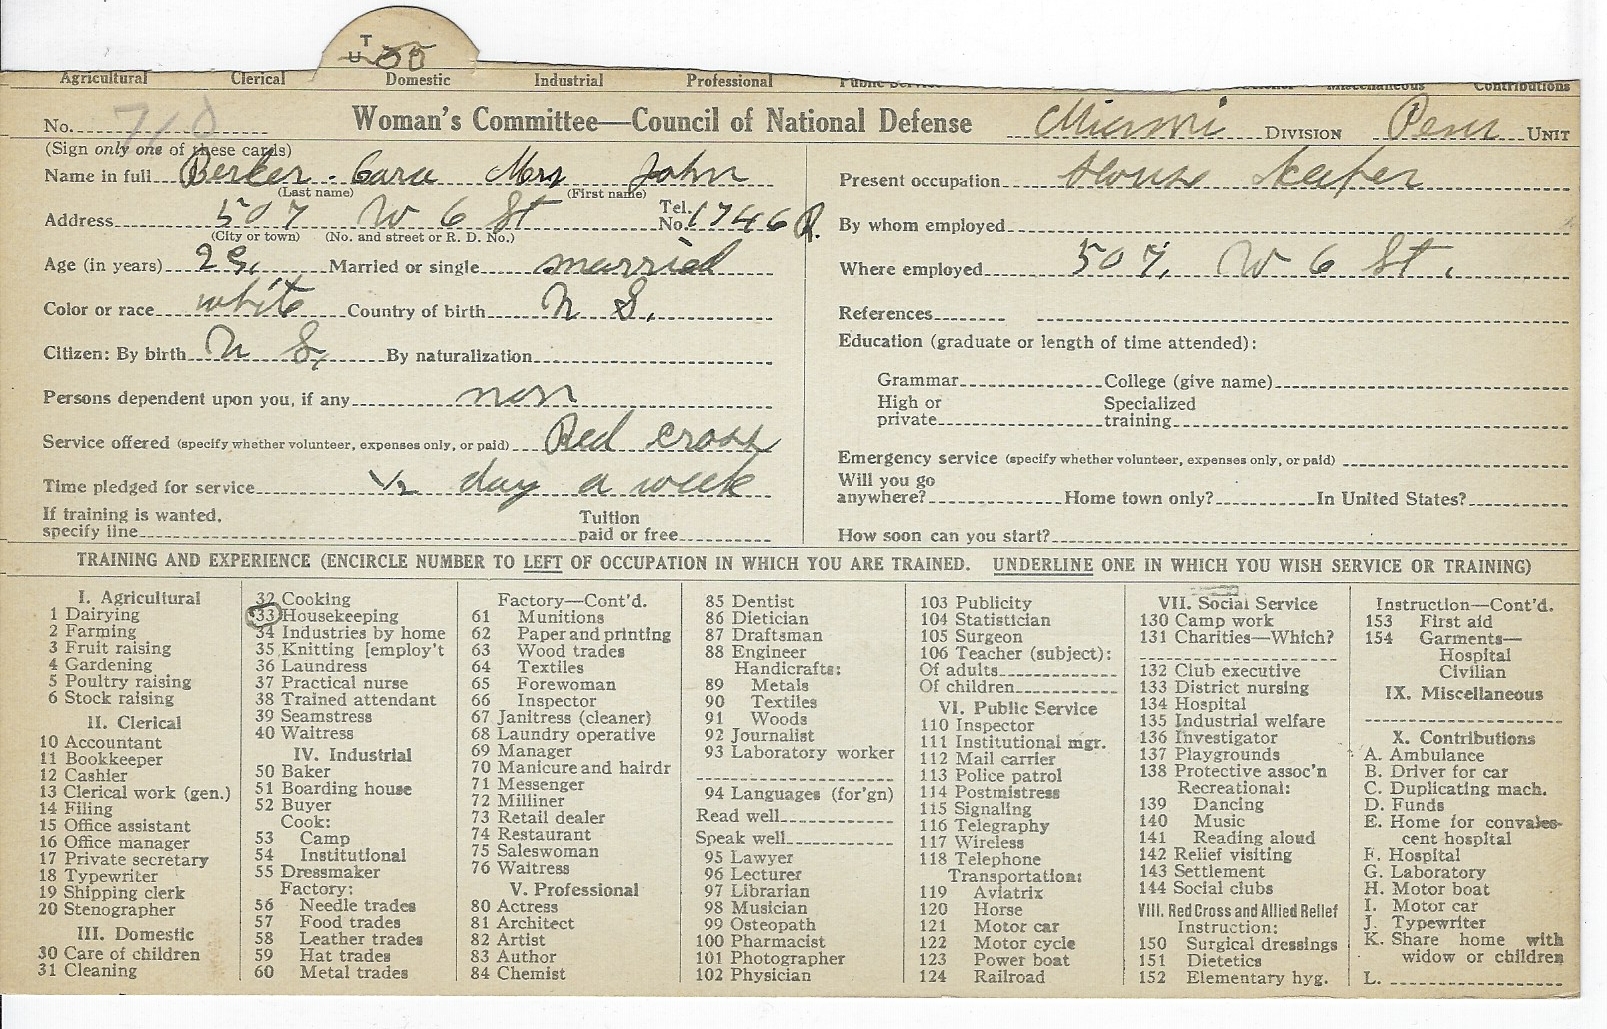 T
U
Agricultural Clerical Domestic Industrial Professional Public Service Miscellaneous Contributions
No. 710 Woman's Committee—Council of National Defense Miami DIVISION Peru UNIT
(Sign only one of these cards)
Name in full Berker Cara Mrs John
(Last name) (First name)
Address 507 W 6 St Tel. No. 1746 R.
(City or town) (No. and street or R. D. No.)
Age (in years) 29 Married or single married
Color or race white Country of birth U S.
Citizen: By birth U S. By naturalization
Persons dependent upon you, if any non
Service offered (specify whether volunteer, expenses only, or paid) Red cross
Time pledged for service 1/2 day a week
If training is wanted, specify line Tuition paid or free
Present occupation House Keeper
By whom employed
Where employed 507, W 6 St.
References
Education (graduate or length of time attended):
Grammar College (give name)
High or private Specialized training
Emergency service (specify whether volunteer, expenses only, or paid)
Will you go anywhere? Home town only? In United States?
How soon can you start?
TRAINING AND EXPERIENCE (ENCIRCLE NUMBER TO LEFT OF OCCUPATION IN WHICH YOU ARE TRAINED. UNDERLINE ONE IN WHICH YOU WISH SERVICE OR TRAINING)
I. Agricultural
1 Dairying
2 Farming
3 Fruit raising
4 Gardening
5 Poultry raising
6 Stock raising
II. Clerical
10 Accountant
11 Bookkeeper
12 Cashier
13 Clerical work (gen.)
14 Filing
15 Office assistant
16 Office manager
17 Private secretary
18 Typewriter
19 Shipping clerk
20 Stenographer
III. Domestic
30 Care of children
31 Cleaning
32 Cooking
33 Housekeeping
34 Industries by home
35 Knitting [employ't
36 Laundress
37 Practical nurse
38 Trained attendant
39 Seamstress
40 Waitress
IV. Industrial
50 Baker
51 Boarding house
52 Buyer
Cook:
53 Camp
54 Institutional
55 Dressmaker
Factory:
56 Needle trades
57 Food trades
58 Leather trades
59 Hat trades
60 Metal trades
Factory—Cont'd.
61 Munitions
62 Paper and printing
63 Wood trades
64 Textiles
65 Forewoman
66 Inspector
67 Janitress (cleaner)
68 Laundry operative
69 Manager
70 Manicure and hairdr
71 Messenger
72 Milliner
73 Retail dealer
74 Restaurant
75 Saleswoman
76 Waitress
V. Professional
80 Actress
81 Architect
82 Artist
83 Author
84 Chemist
85 Dentist
86 Dietician
87 Draftsman
88 Engineer
Handicrafts:
89 Metals
90 Textiles
91 Woods
92 Journalist
93 Laboratory worker
94 Languages (for'gn)
Read well
Speak well
95 Lawyer
96 Lecturer
97 Librarian
98 Musician
99 Osteopath
100 Pharmacist
101 Photographer
102 Physician
103 Publicity
104 Statistician
105 Surgeon
106 Teacher (subject):
Of adults
Of children
VI. Public Service
110 Inspector
111 Institutional mgr.
112 Mail carrier
113 Police patrol
114 Postmistress
115 Signaling
116 Telegraphy
117 Wireless
118 Telephone
Transportation:
119 Aviatrix
120 Horse
121 Motor car
122 Motor cycle
123 Power boat
124 Railroad
VII. Social Service
130 Camp work
131 Charities—Which?
132 Club executive
133 District nursing
134 Hospital
135 Industrial welfare
136 Investigator
137 Playgrounds
138 Protective assoc'n
Recreational:
139 Dancing
140 Music
141 Reading aloud
142 Relief visiting
143 Settlement
144 Social clubs
VIII. Red Cross and Allied Relief
Instruction:
150 Surgical dressings
151 Dietetics
152 Elementary hyg.
Instruction—Cont'd.
153 First aid
154 Garments—
Hospital
Civilian
IX. Miscellaneous
X. Contributions
A. Ambulance
B. Driver for car
C. Duplicating mach.
D. Funds
E. Home for convales-
cent hospital
F. Hospital
G. Laboratory
H. Motor boat
I. Motor car
J. Typewriter
K. Share home with
widow or children
L.